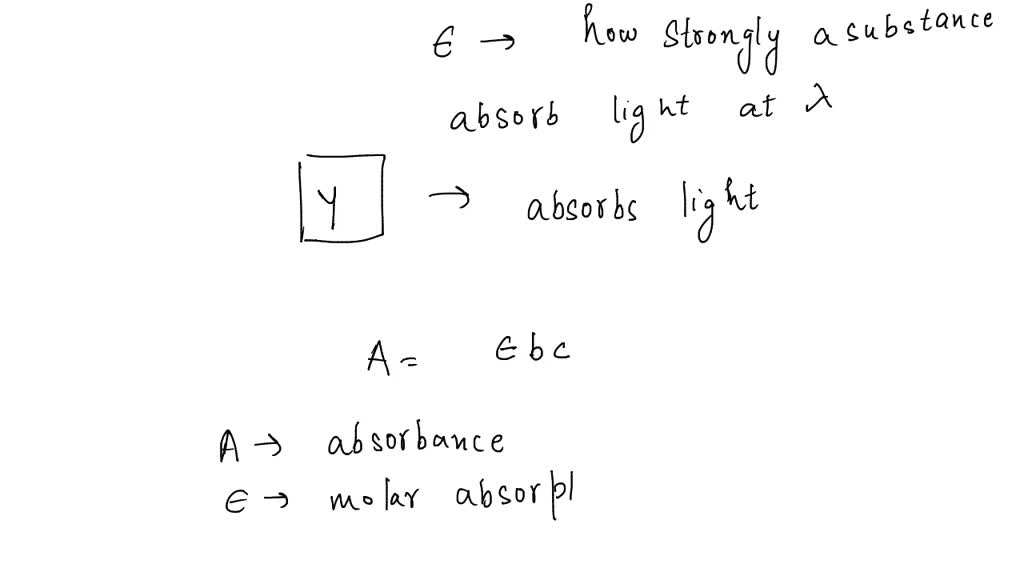 ϵ → how strongly a substance
absorb light at λ
Y → absorbs light
A = ϵbc
A → absorbance
ϵ → molar absorpl